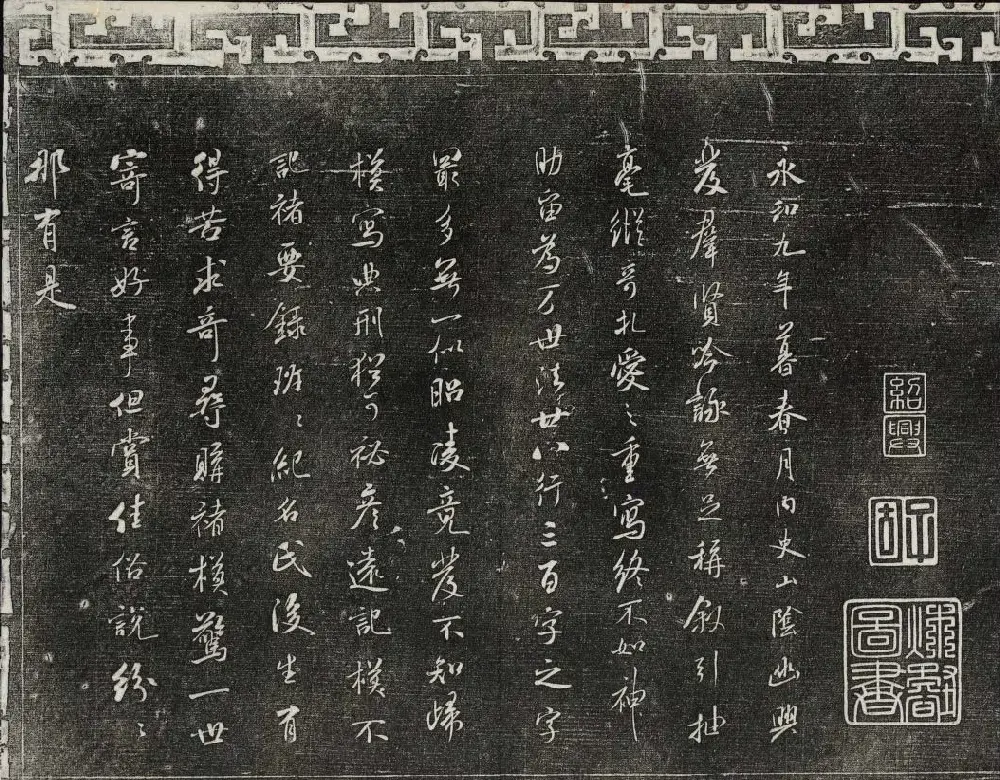 紹興
永和九年暮春月内史山陰幽興
發羣賢吟詠無足稱叙引抽
毫縱奇札愛之重寫終不如神
助留為万世法廿八行三百字之字
最多無一似昭陵竟發不知歸
模寫典刑猶可祕彥遠記模不
記褚要録班〻紀名氏後生有
得苦求奇尋購褚模驚一世
寄言好事但賞佳俗說紛〻
那有是
圖書